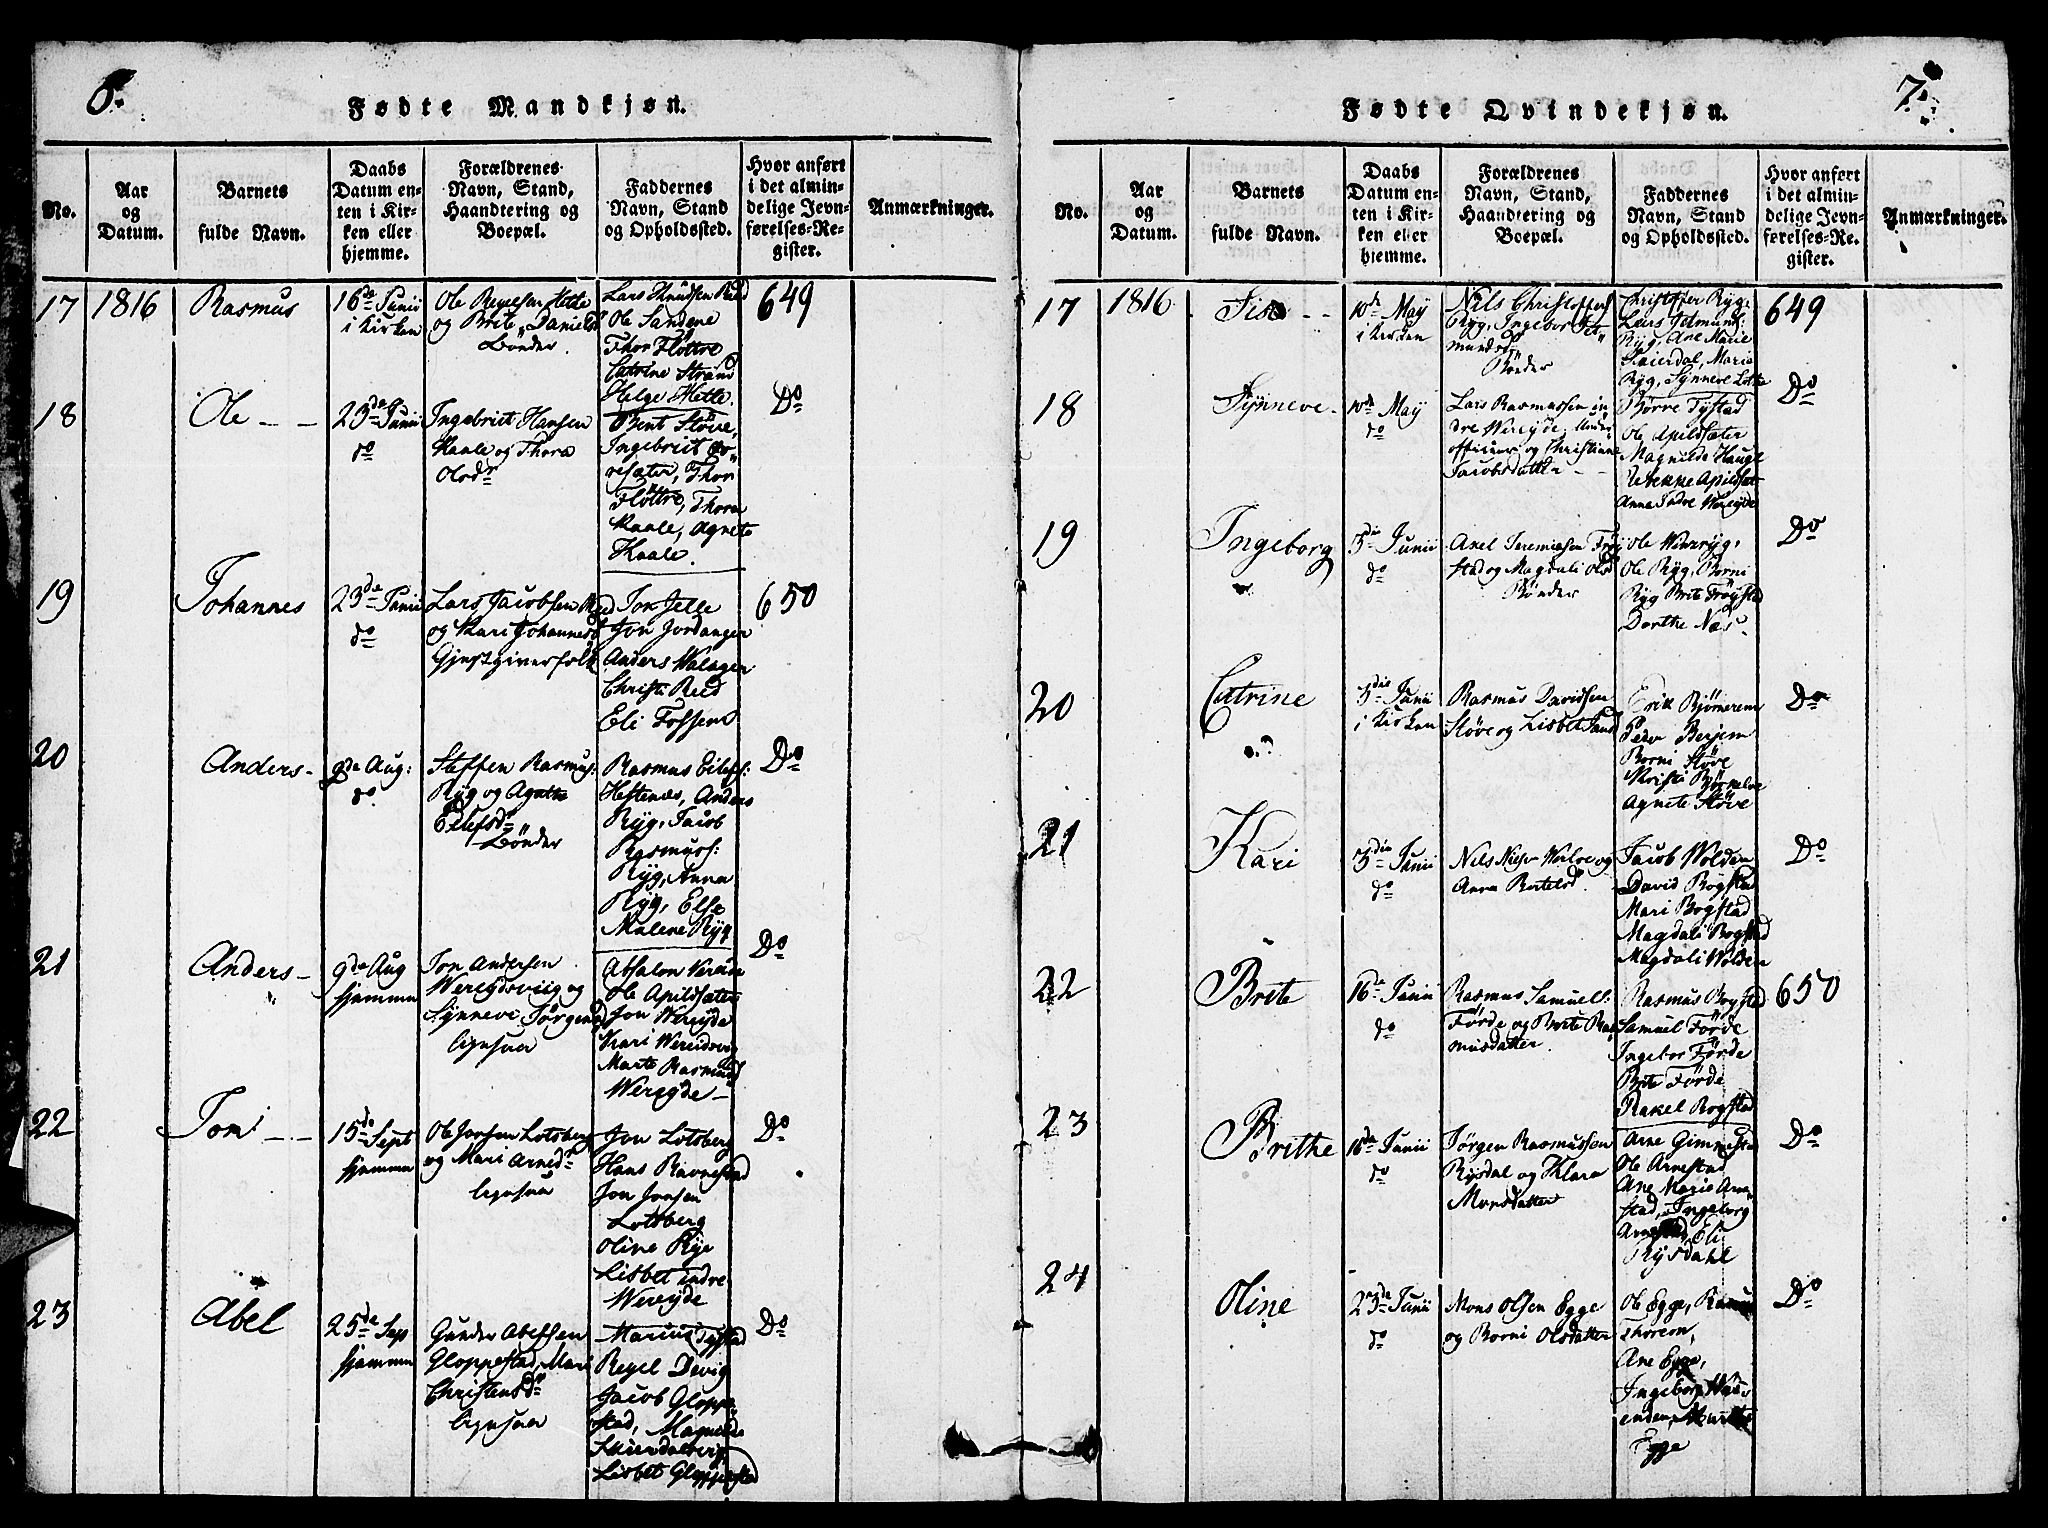 6.
Fødte Mandkjøn.
No.
Aar
og
Datum.
Barnets
fulde Navn.
Daabs
Datum en-
ten i Kir-
ken eller
hjemme.
Forældrenes
Navn, Stand,
Haandtering og
Boepæl.
Faddernes
Navn, Stand
og Opholdssted.
Hvor anført
i det almin-
delige Jevn-
førelses-Re-
gister.
Anmærkninger.
17
1816
Rasmus
16de Junii
i Kirken
Ole
Hette
og Brite Daniels
Bönder.
Lars Knudsen Reed
Ole Sandene
Thor Flöttre
Catrine Strand
Helge Hette.
649
18
Ole - -
23de Junii
do
Ingebrict Hansen
Kaale og Thora
Olsdr
Bent Störe,
Ingebrict
Thor
Flöttre, Thora
Kaale, Agnete
Kaale.
Do
19
Johannes
23de Junii
do
Lars Jacobsen Reed
og Kari Johannesd
Gjestgiverfolk
Jon Jelle
Jon Jordanger
Anders
Christi Reed
Eli Fossem
650
20
Anders -
9de Aug:
do
Steffen Rasmus:
Ryg og Agathe
Eilefsdr
Bönder
Rasmus Eilefs:
Hestenæs, Anders
Ryg, Jacob
Rasmus:
Ryg, Anna
Ryg, Else
Malene Ryg
Do
21
Anders -
9de Aug
hjemme
Jon Andersen
Wereidsviig og
Synneve Jörgensd
Absalon Vereide
Ole Apildsæter
Jon Wereyde
Kari Wereidsvig
Marte Rasmusd
Wereyde -
Do
22
Jon - -
15de Sept
hjemme
Ole Jonsen Lotsberg
og Mari Arnedr
Jon Lotsberg
Hans Ravnestad
Jon Jonsen
Lotsberg
Oline Rye
Lisbet indre
Wereyde
Do
23
Abel
25de Sep
hjemme
Gunder Abelsen
Gloppestad, Mari
Christensdr
Marius Tystad
Devig
Jacob Gloppe-
stad, Magnilde
Skierdalberg
Lisbet Gloppestad
Do
7.
Fødte Qvindekjøn.
No.
Aar
og
Datum.
Barnets
fulde Navn.
Daabs
Datum en-
ten i Kir-
ken eller
hjemme.
Forældrenes
Navn, Stand,
Haandtering og
Boepæl.
Faddernes
Navn, Stand
og Opholdssted.
Hvor anført
i det almin-
delige Jevn-
førelses-Re-
gister.
Anmærkninger.
17
1816
10de May
i Kirken
Nils Christoffers
Ryg, Ingebor Jet-
mundsdr
Bönder
Christoffer Ryg,
Lars Jetmunds:
Ryg, Ane Marie
Maria
Ryg, Synneve Lotte
649
18
Synneve -
10de May
do
Lars Rasmussen in-
dre Wereyde, Under
officier og Christiane
Jacobsdatter - -
Börre Tystad
Ole Apildsæter
Magnilde Hauge
Rebekke Apildset
Anna Indre Wereyde
Do
19
Ingeborg
3die Junii
do
Axel Jeremiasen Fröy
stad og Magdali Olsd
Bönder
Ole
Ole Ryg, Borni
Ryg Brite Fröystad
Dorthe Næs -
Do
20
Catrine
3die Junii
i Kirken
Rasmus Davidsen
Störe og Lisbet
Erik Björnerem
Peder Berjem
Borni Störe
Kristi
Agnete Störe
Do
21
Kari
3die Junii
do
Nils Nilsen
og
Anna Bertelsd
Jacob Wolden
David Bogstad
Mari Bogstad
Magdali Bogstad
Magdali Wolden
Do
22
Brite
16de Junii
do
Rasmus Samuels:
Förde og Berte Ras-
musdatter.
Rasmus Bogstad
Samuel Förde
Ingebor Förde
Brite Förde
Rakel Bogstad
650
23
Brithe
16de Junii
do
Jörgen Rasmussen
Rysdal og Klara
Monsdatter
Arne Gimmestad
Ole Arnestad
Ane Marie Arne-
stad, Ingeborg
Arnestad, Eli
Rysdahl
Do
24
Oline
23de Junii
do
Mons Olsen Egge
og Borni Olsdatter
Ole Egge, Rasmus
Thorem,
Ane Egge,
Ingeborg
enden, Marthe
Egge
Do